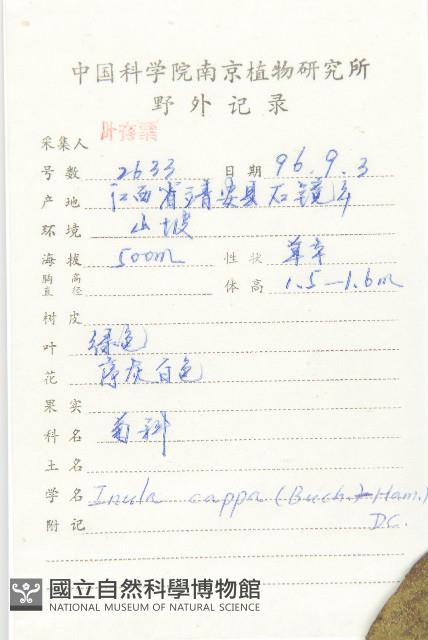 中国科学院南京植物研究所
野外记录
采集人 叶存粟
号数 2633 日期 96.9.3
产地 江西省靖安县石镜
环境 山坡
海拔 500m 性状 草本
胸高直径 体高 1.5—1.6m
树皮
叶 绿色
花 灰白色
果实
科名 菊科
土名
学名 Inula cappa (Buch.-Ham.)
D.C.
附记
國立自然科學博物館
NATIONAL MUSEUM OF NATURAL SCIENCE